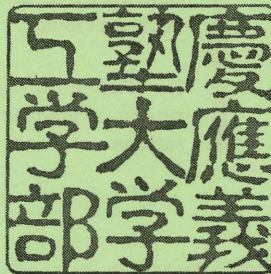 慶應義
塾大学
工学部